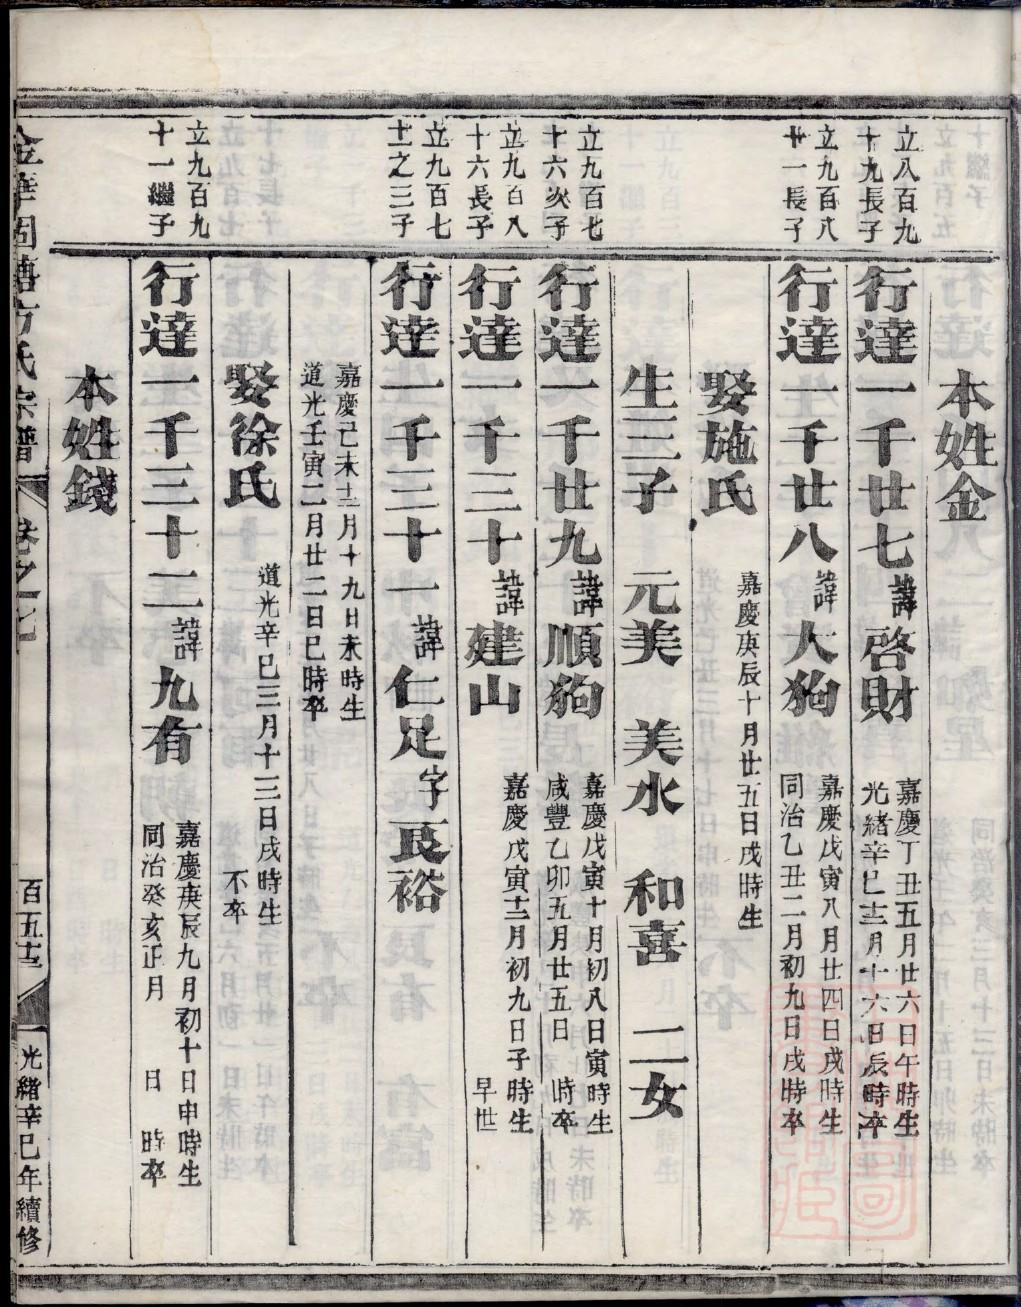 本姓金
立八百九
十九長子
行達一千廿七諱啓財
嘉慶丁丑五月廿六日午時生
光緒辛巳十二月十六日辰時卒
立九百八
廿一長子
行達一千廿八諱大狗
嘉慶戊寅八月廿四日戌時生
同治乙丑二月初九日戌時卒
娶施氏
嘉慶庚辰十月廿五日戌時生
生三子 元美 美水 和喜 二女
立九百七
十六次子
行達一千廿九諱順狗
嘉慶戊寅十月初八日寅時生
咸豐乙卯五月廿五日 時卒
立九百八
十六長子
行達一千三十諱建山
嘉慶戊寅十二月初九日子時生
早世
立九百七
十之三子
行達一千三十一諱仁足字良裕
嘉慶己未十二月十九日未時生
道光壬寅二月廿二日巳時卒
娶徐氏
道光辛巳三月十三日戌時生
不卒
立九百九
十一繼子
行達一千三十二諱九有
嘉慶庚辰九月初十日申時生
同治癸亥正月 日 時卒
本姓錢
金華固塘方氏宗譜
卷之七
百五十三
光緒辛巳年續修